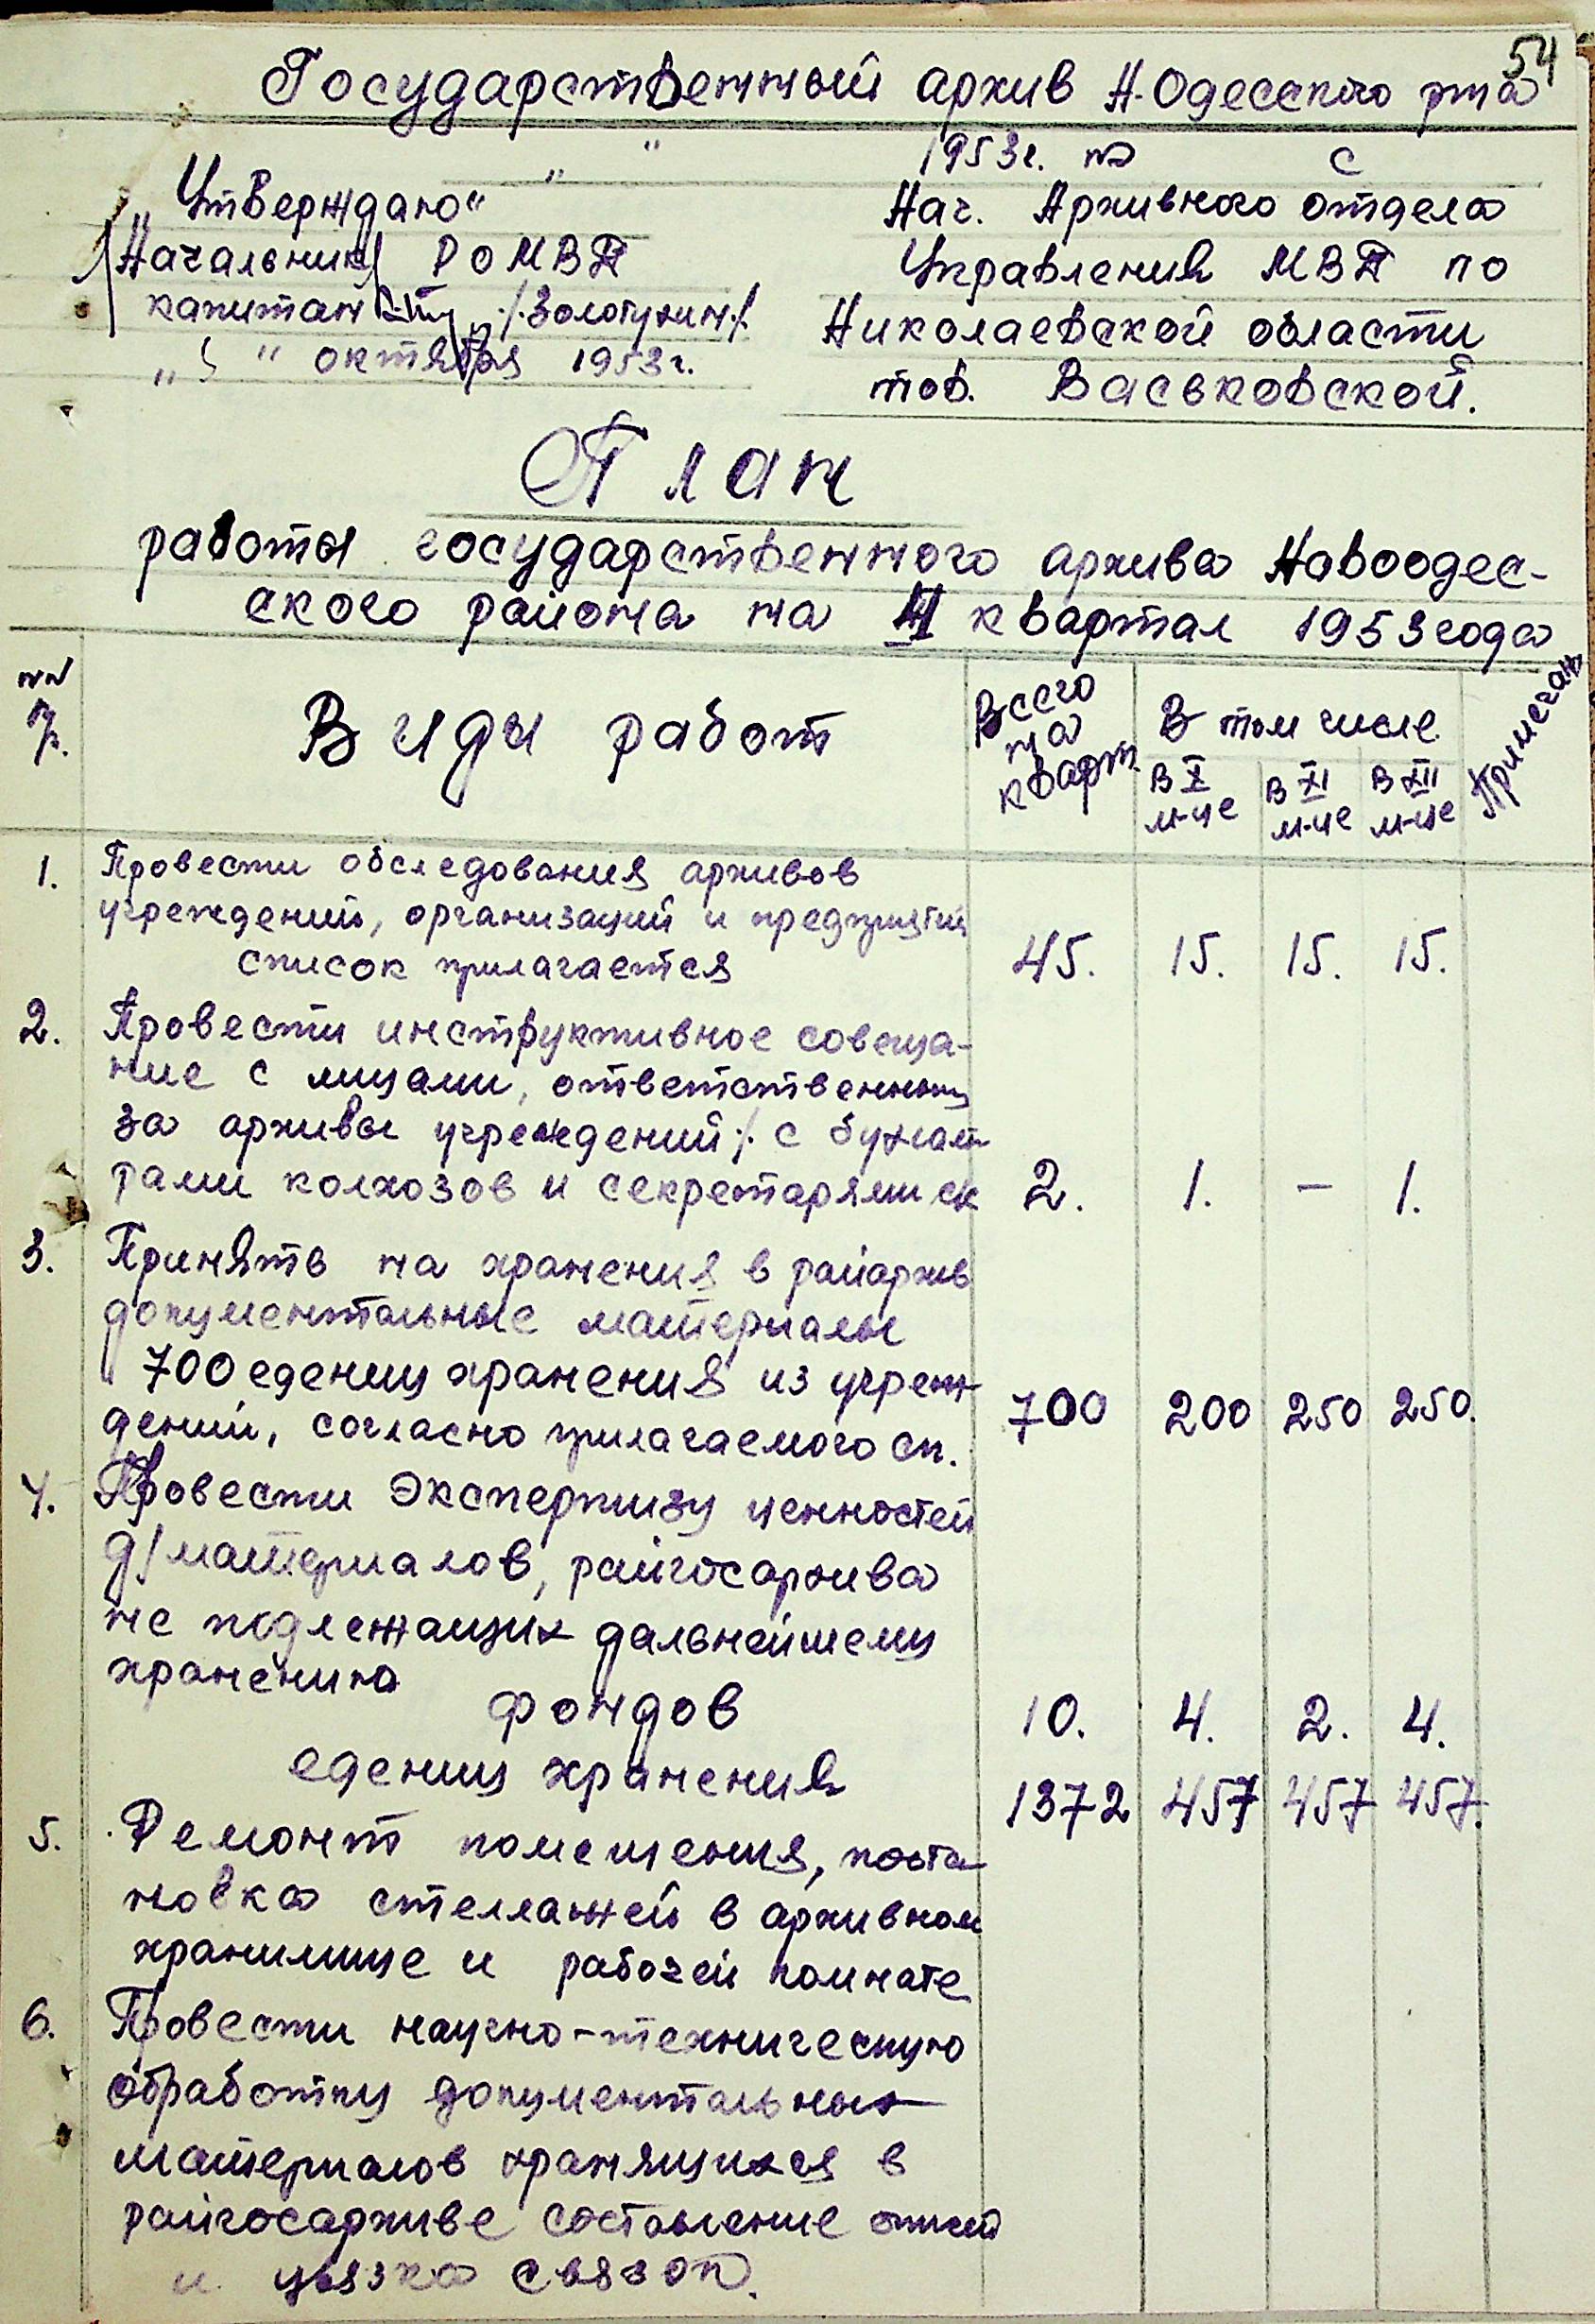 54
Государственный архив Н.Одесского р-на
" " 1953г. № с
„Утверждаю"
Начальник РОМВД
капитан /Золотухин/
„5" октября 1953г.
Нач. Архивного отдела
Управления МВД по
Николаевской области
тов. Васьковской.
План
работы государственного архива Новоодес-
ского района на IV квартал 1953 года
№№
п.
Виды работ
Всего
на
кварт.
В том числе
В X
м-це
В XI
м-це
В XII
м-це
Примечан
1. Провести обследования архивов
учреждений, организаций и предприятий
список прилагается 45. 15. 15. 15.
2. Провести инструктивное совеща-
ние с лицами, ответственными
за архивы учреждений ./. с бухгалт
рами колхозов и секретарями с/с 2. 1. — 1.
3. Принять на хранения в райархив
документальные материалы
700 едениц хранения из учреж-
дений, согласно прилагаемого сп. 700 200 250 250.
4. Провести экспертизу ценностей
д/материалов, райгосархива
не подлежащих дальнейшему
хранению
фондов 10. 4. 2. 4.
едениц хранения 1372 457 457 457.
5. Ремонт помещения, поста-
новка стеллажей в архивном
хранилище и рабочей комнате
6. Провести научно-техническую
обработку документальных
материалов хранящихся в
райгосархиве составление описей
и увязка связок.